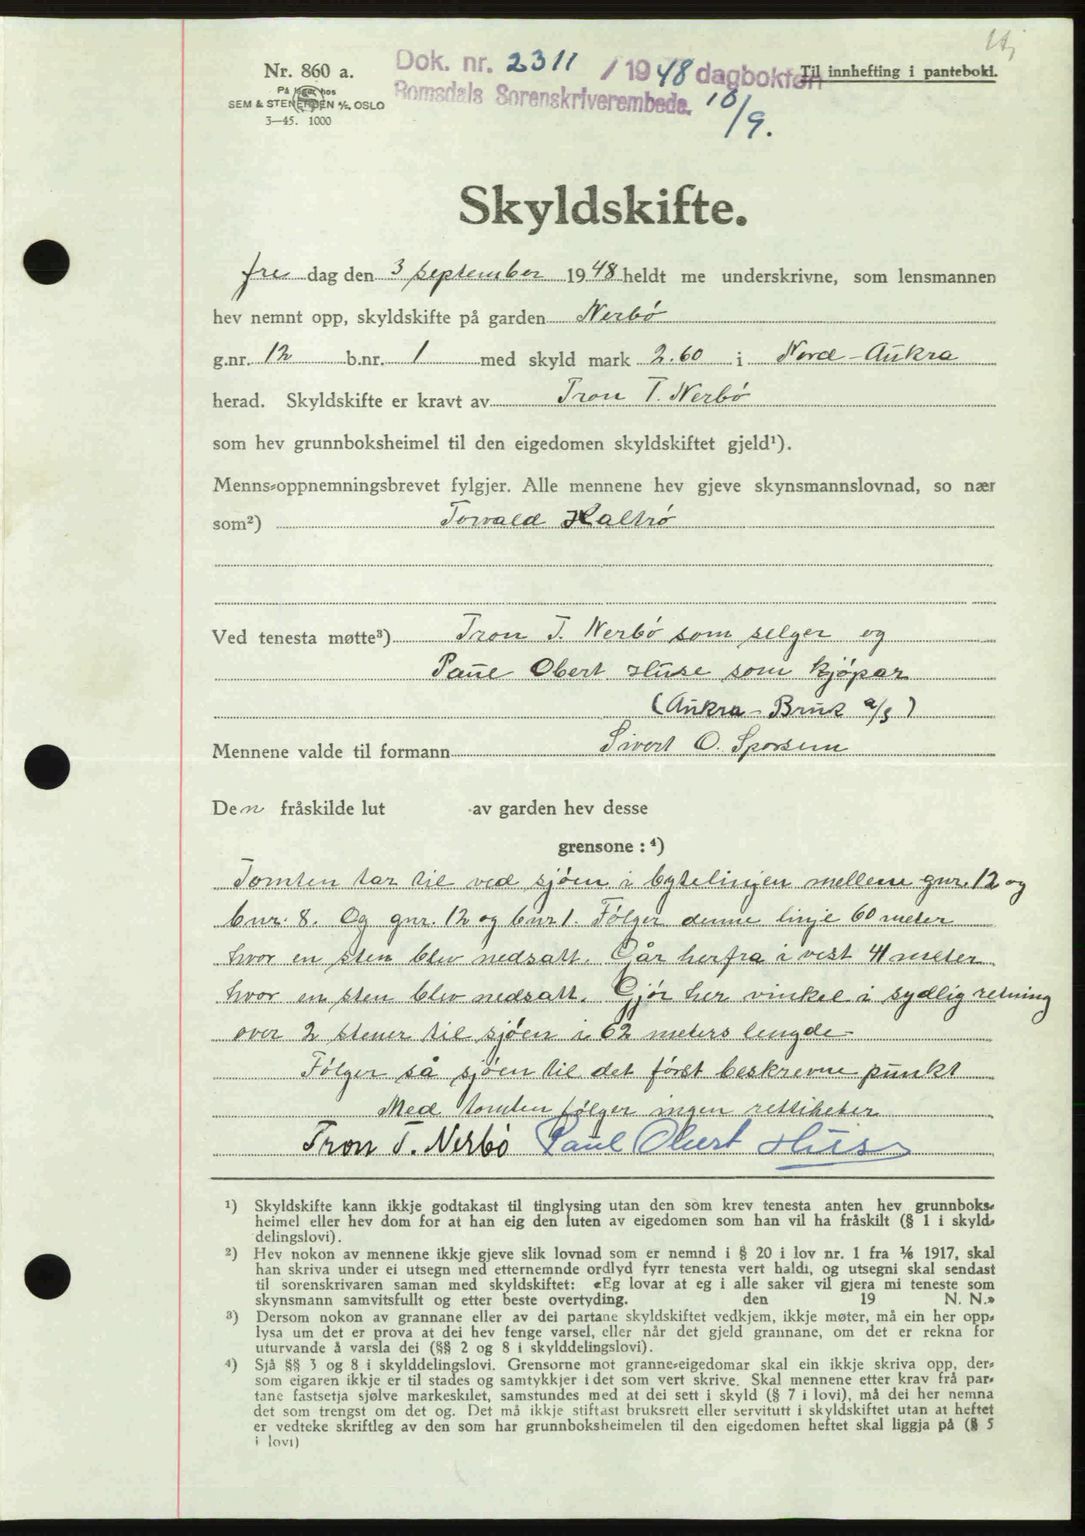 Nr. 860 a.
På lager hos
SEM & STENERSEN A/S, OSLO
3—45. 1000
Dok. nr. 2311 / 1948 dagboktøri
Romsdals Sorenskriverembede. 10/9.
Til innhefting i panteboki.
Skyldskifte.
fre dag den 3 september 1948 heldt me underskrivne, som lensmannen
hev nemnt opp, skyldskifte på garden Nerbö
g.nr. 12 b.nr. 1 med skyld mark 2.60 i Nord-Aukra
herad. Skyldskifte er kravt av Tron T. Nerbö
som hev grunnboksheimel til den eigedomen skyldskiftet gjeld¹).
Menns-oppnemningsbrevet fylgjer. Alle mennene hev gjeve skynsmannslovnad, so nær
som²) Torvald Halhrö
Ved tenesta møtte³) Tron T. Nerbö som selger og
Paul Obert Huse som kjöpar
(Aukra-Bruk a/s)
Mennene valde til formann Sivert O. Sporsem
Den fråskilde lut av garden hev desse
grensone : ⁴)
Tomten tar til ved sjöen i bytelinjen mellem gnr. 12 og
bnr. 8. Og gnr. 12 og bnr 1. Fölger denne linje 60 meter
hvor en sten blev nedsatt. Går herfra i vest 41 meter
hvor en sten blev nedsatt. Gjör her vinkel i sydlig retning
over 2 stener til sjöen i 62 meters lengde
Fölger så sjöen til det först beskrevne punkt
Med tomten fölger ingen rettiheter
Tron T. Nerbö Paul Obert Huse
¹) Skyldskifte kann ikkje godtakast til tinglysing utan den som krev tenesta anten hev grunnboks-
heimel eller hev dom for at han eig den luten av eigedomen som han vil ha fråskilt (§ 1 i skyld-
delingslovi).
²) Hev nokon av mennene ikkje gjeve slik lovnad som er nemnd i § 20 i lov nr. 1 fra 1/6 1917, skal
han skriva under ei utsegn med etternemnde ordlyd fyrr tenesta vert haldi, og utsegni skal sendast
til sorenskrivaren saman med skyldskiftet: «Eg lovar at eg i alle saker vil gjera mi teneste som
skynsmann samvitsfullt og etter beste overtyding. den 19 N. N.»
³) Dersom nokon av grannane eller av dei partane skyldskiftet vedkjem, ikkje møter, må ein her opp-
lysa um det er prova at dei hev fenge varsel, eller når det gjeld grannane, om det er rekna for
uturvande å varsla dei (§§ 2 og 8 i skylddelingslovi).
⁴) Sjå §§ 3 og 8 i skylddelingslovi. Grensorne mot granne-eigedomar skal ein ikkje skriva opp, der-
som eigaren ikkje er til stades og samtykkjer i det som vert skrive. Skal mennene etter krav frå par-
tane fastsetja sjølve markeskilet, samstundes med at dei sett i skyld (§ 7 i lovi), må dei her nemna
det som trengst om det og. Det må ikkje stiftast bruksrett eller servitutt i skyldskiftet utan at heftet
er vedteke skriftleg av den som har grunnboksheimelen til den eigedomen heftet skal liggja på (§ 5
i lovi)